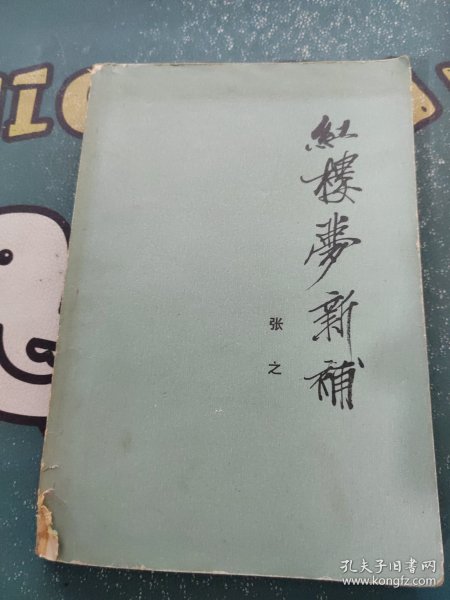 紅樓夢新補
张之
孔夫子旧书网
www.kongfz.com